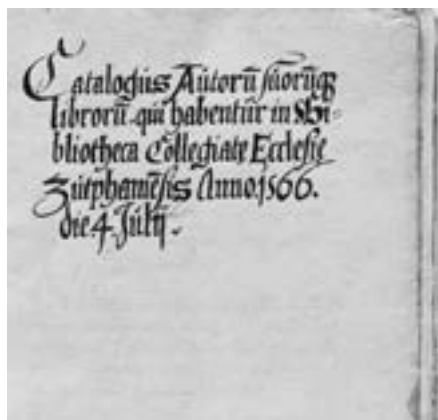 Catalogus Autorū suorūqꝫ
librorū qui habentur in Bi-
bliotheca Collegiatę Ecclesię
Zutphaniēsis Anno.1566.
die.4.Julij.